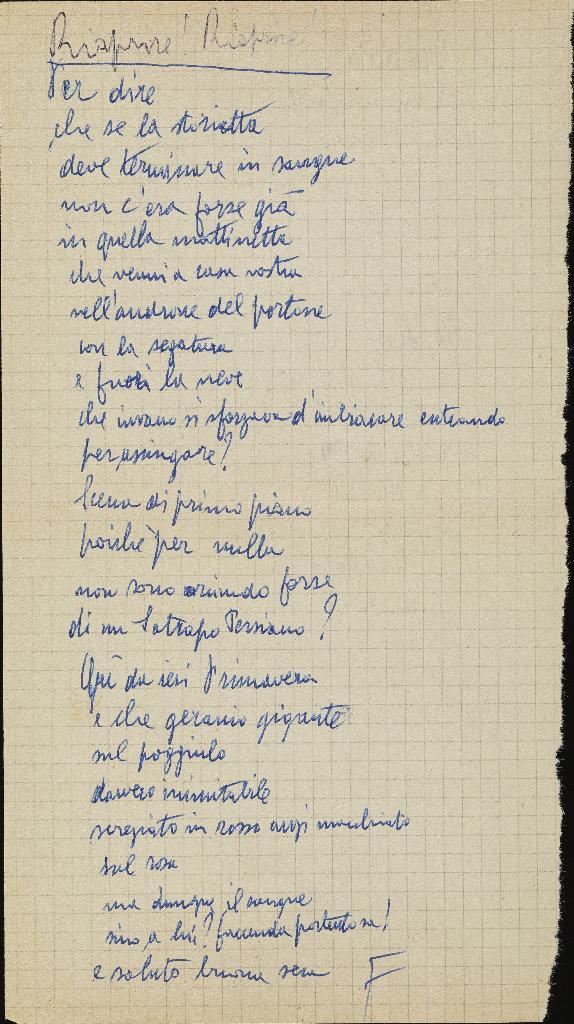 Risponse! Risponse!
Per dire
che se la storietta
deve terminare in sangue
non c'era forse già
in quella mattinetta
che venni a casa vostra
nell'androne del portone
con la segatura
e fuori la neve
che invano si sforzava d'imbiancare entrando
per
Scena di primo piano
poichè per nulla
non sono oriundo forse
di un Satrapo Persiano?
Qui da ieri Primavera
e che geranio gigante
sul poggiolo
davvero inimitabile
screziato in rosso anzi macchiato
sul rosa
ma dunque il sangue
sino a lui? faccenda portentosa!
e saluto buona sera F